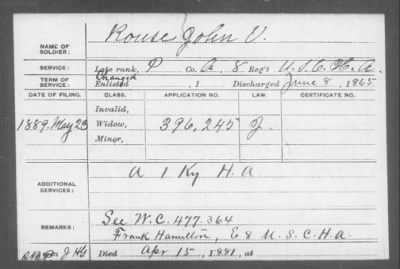 NAME OF SOLDIER: Rouse John V.
SERVICE: Late rank, P Co. A, 8 Reg't U.S.C.H.A.
TERM OF SERVICE: Changed
Enlisted , 1 Discharged June 8, 1865
DATE OF FILING. CLASS. APPLICATION NO. LAW. CERTIFICATE NO.
Invalid,
1889. May 23 Widow, 396,245 J.
Minor,
ADDITIONAL SERVICES: A 1 Ky H.A.
REMARKS: See W.C. 477.364
Frank Hamilton, E 8 U.S.C.H.A.
Died Apr 15, 1881, at